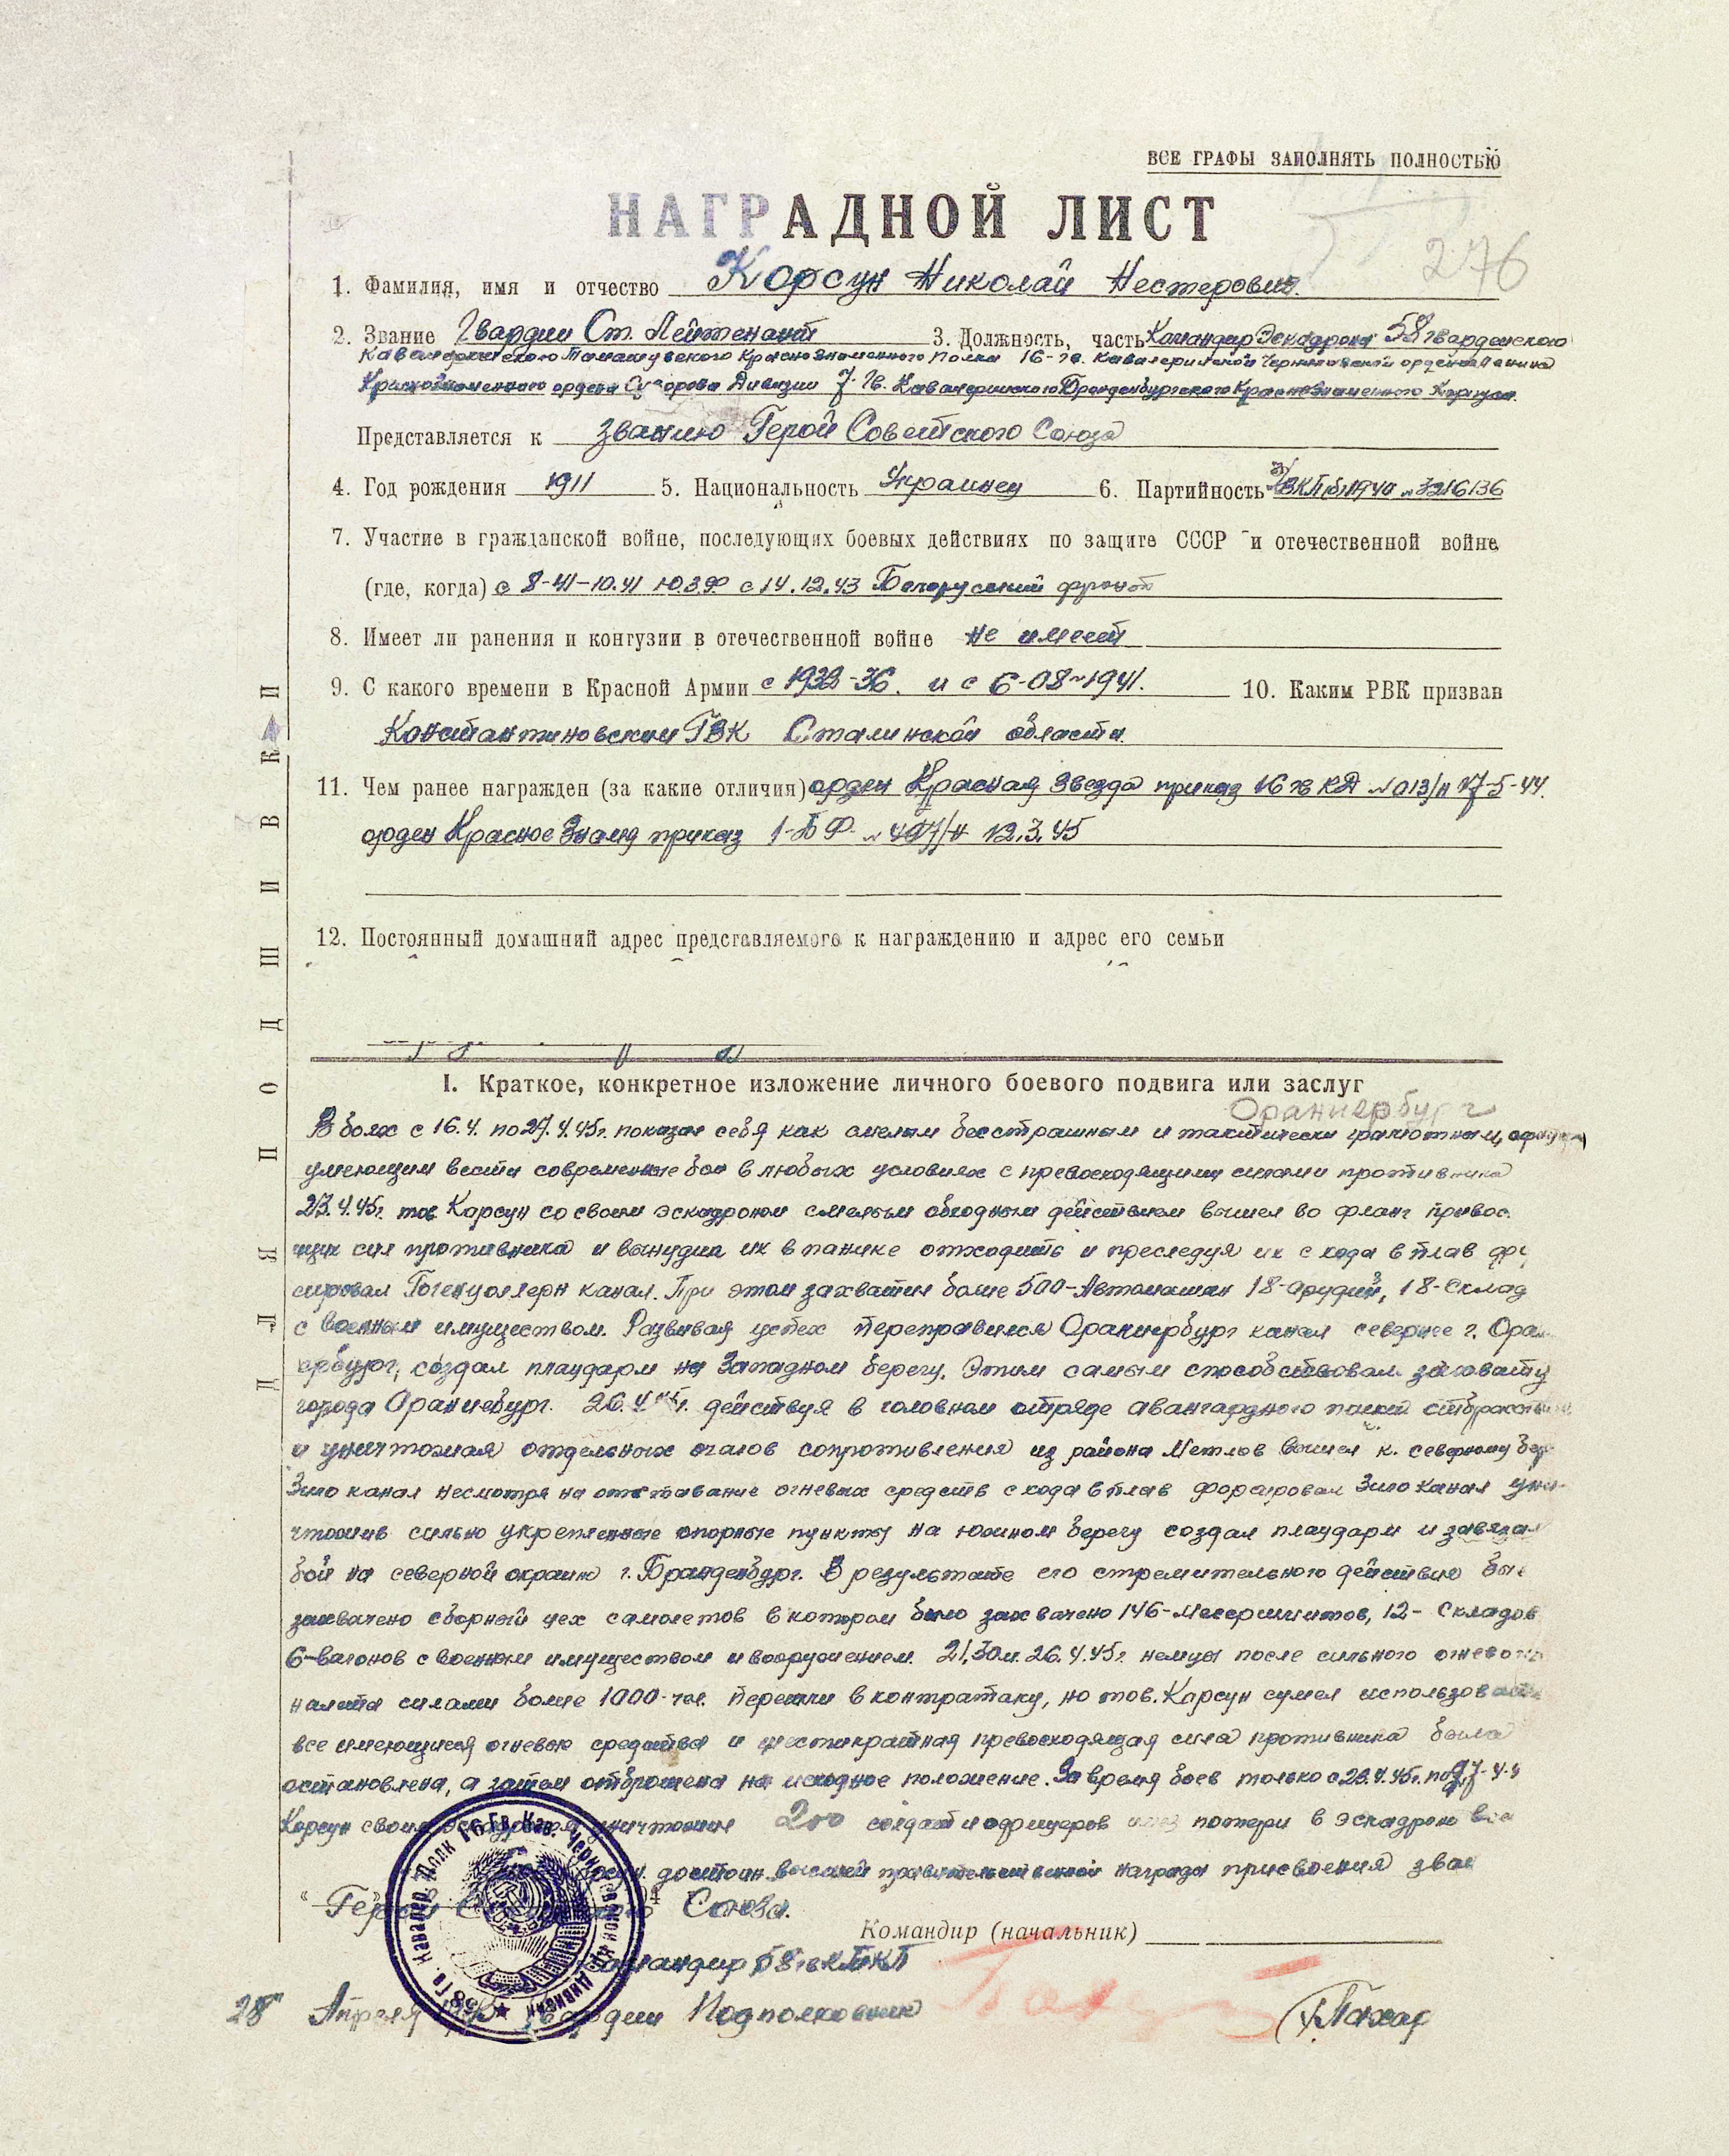 ВСЕ ГРАФЫ ЗАПОЛНЯТЬ ПОЛНОСТЬЮ
НАГРАДНОЙ ЛИСТ
276
1. Фамилия, имя и отчество Корсун Николай Нестерович.
2. Звание Гвардии Ст. Лейтенант 3. Должность, часть Командир Эскадрона 58 гварденского
Кавалерийского Томашувского Краснознаменного Полка 16-гв. Кавалерийской Черниговской ордена Ленина
Краснознаменного ордена Суворова Дивизии 7-Гв. Кавалерийского Бранденбургского Краснознаменного Корпуса.
Представляется к званию Герой Советского Союза
4. Год рождения 1911 5. Национальность Украинец 6. Партийность ВКП(б) 1940 № 3216136
7. Участие в гражданской войне, последующих боевых действиях по защите СССР и отечественной войне
(где, когда) с 8-41-10.41 Ю.З.Ф. с 14.12.43 Белорусский фронт
8. Имеет ли ранения и контузии в отечественной войне не имеет
9. С какого времени в Красной Армии с 1933-36. и с 6-08-1941. 10. Каким РВК призван
Константиновским ГВК Сталинской области.
11. Чем ранее награжден (за какие отличия) орден Красная Звезда приказ 16 гв КД № 013/н 17-5-44.
орден Красное Знамя приказ 1-БФ № 407/н 12.3.45
12. Постоянный домашний адрес представляемого к награждению и адрес его семьи
ДЛЯ ПОДШИВКИ
I. Краткое, конкретное изложение личного боевого подвига или заслуг
Ораниербург
В боях с 16.4. по 27.4.45г. показал себя как смелым бесстрашным и тактически грамотным,
умеющим вести современные бои в любых условиях с превосходящими силами противника
23.4.45г. тов Карсун со своим эскадроном смелым обходным действием вышел во фланг превос.
щих сил противника и вынудил их в панике отходить и преследуя их с хода в плав фор
сировал Гогенцоллерн канал. При этом захватил более 500-Автомашин 18-орудий, 18-Склад
с военным имуществом. Развивая успех переправился Ораниербург канал севернее г. Оран
ербург, создал плацдарм на Западном берегу. Этим самым способствовал захвату
городаОраниебург. 26.4.45г. действуя в головном отряде авангардного полка
и уничтожая отдельных очагов сопротивления из района Метлов вышел к. северному бер
Зило канал несмотря на отставание огневых средств с хода в плав форсировал Зило канал уни
чтожив сильно укрепленные опорные пункты на южном берегу создал плацдарм и завязал
бой на северной окраине г. Бранденбург. В результате его стремительного действия был
захвачено сборный цех самолетов в котором было захвачено 146-Месершмитов, 12- Складов
6-вагонов с военным имуществом и вооружением. 21,30м. 26.4.45г. немцы после сильного огневого
налета силами более 1000-чел. перешли в контратаку, но тов. Карсун сумел использовать
все имеющиеся огневые средства и шестикратная превосходящая сила противника была
остановлена, а затем отброшена на исходное положение. За время боев только с 23.4.45г. по 27-4-4
Карсун своим эскадроном уничтожил 200 солдат и офицеров потери в эскадроне
достоин высшей правительственной награды присвоения зван
"Герой Союза.
Командир (начальник)
Командир 58 гв КТКП
28" Апреля Гвардии Подполковник Пахар
58 Гв. Кавалер. Полк 16 Гв. Кав. Черниговской Дивизии